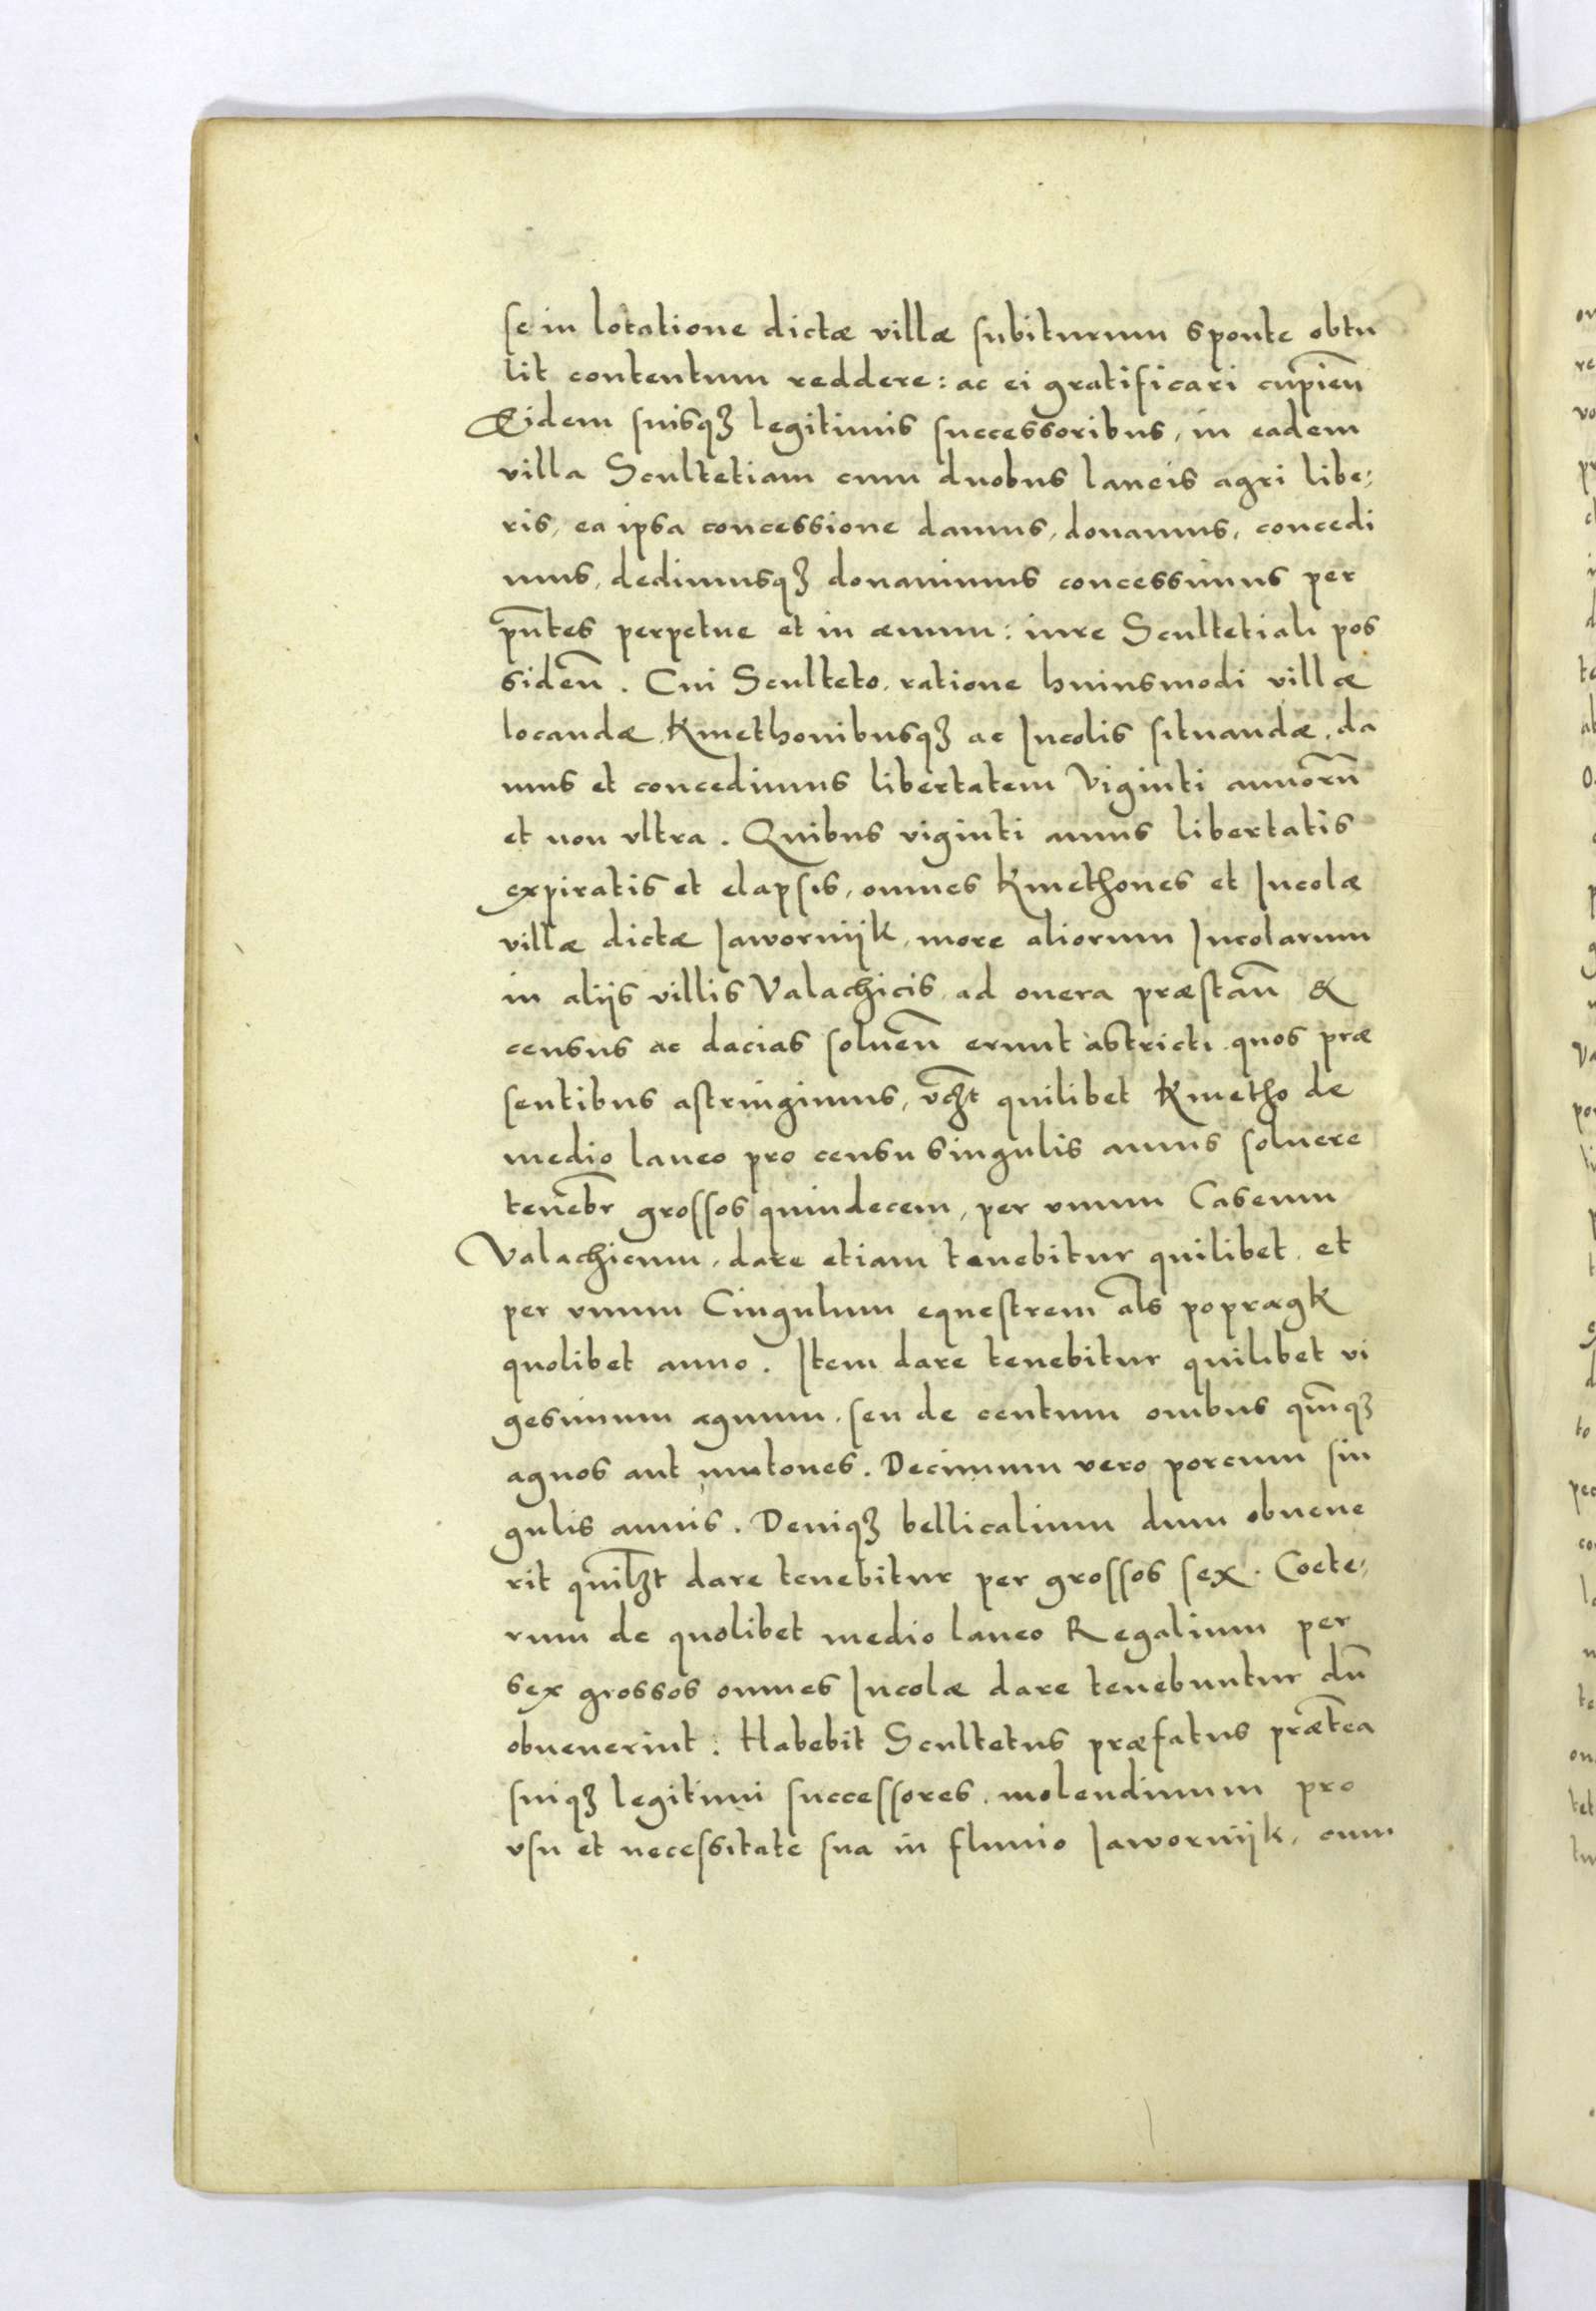 se in locatione dictæ villæ subiturum sponte obtu
lit contentum reddere: ac ei gratificari cupien̄
Eidem suisqꝫ legitimis successoribus, in eadem
villa Scultetiam cum duobus laneis agri libe,
ris, ea ipsa concessione damus, donamus, concedi
mus, dedimusqꝫ donauimus concessimus per
p̄ntes perpetue et in æuum: iure Scultetiali pos
siden̄. Cui Sculteto, ratione huiusmodi villæ
locandæ, Kmethonibusqꝫ ac Incolis situandæ, da
mus et concedimus libertatem Viginti annorū
et non vltra. Quibus viginti annis libertatis
expiratis et elapsis, omnes Kmethones et Incolæ
villæ dictæ Jawornijk, more aliorum Incolarum
in alijs villis Valachicis, ad onera præstan̄ &
census ac dacias soluen̄ erunt astricti, quos præ
sentibus astringimus, vꝫt quilibet Kmetho de
medio laneo pro censu singulis annis soluere
tenebr̄ grossos quindecem, per vnum Caseum
Valachicum, dare etiam tenebitur quilibet, et
per vnum Cingulum equestrem al̄s popragk
quolibet anno. Item dare tenebitur quilibet vi
gesimum agnum, seu de centum ouibus quīqꝫ
agnos aut mutones. Decimum vero porcum sin
gulis annis. Deniqꝫ bellicalium dum obuene
rit quilꝫt dare tenebitur per grossos sex. Coete,
rum de quolibet medio laneo Regalium per
sex grossos omnes Incolæ dare tenebuntur dū
obuenerint: Habebit Scultetus præfatus præt̄ea
suiqꝫ legitimi successores, molendinum pro
vsu et necessitate sua in fluuio Jawornijk, cum